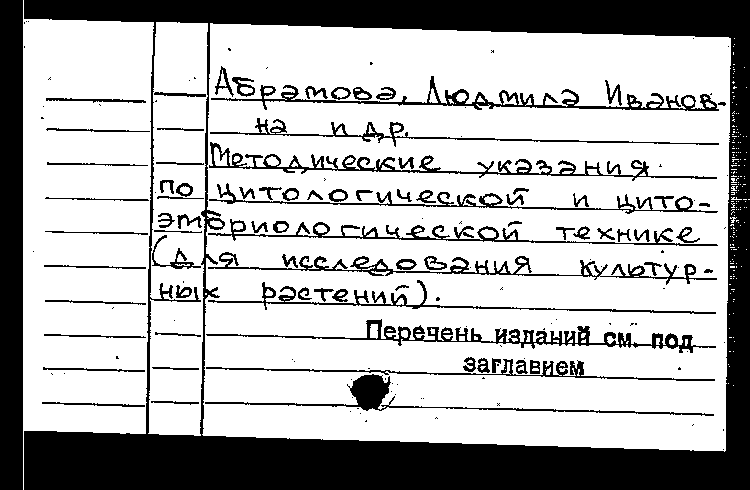 Абрамова, Людмила Иванов-
на и др.
Методические указания
по цитологической и цито-
эмбриологической технике
(для исследования культур-
ных растений).
Перечень изданий см. под
заглавием